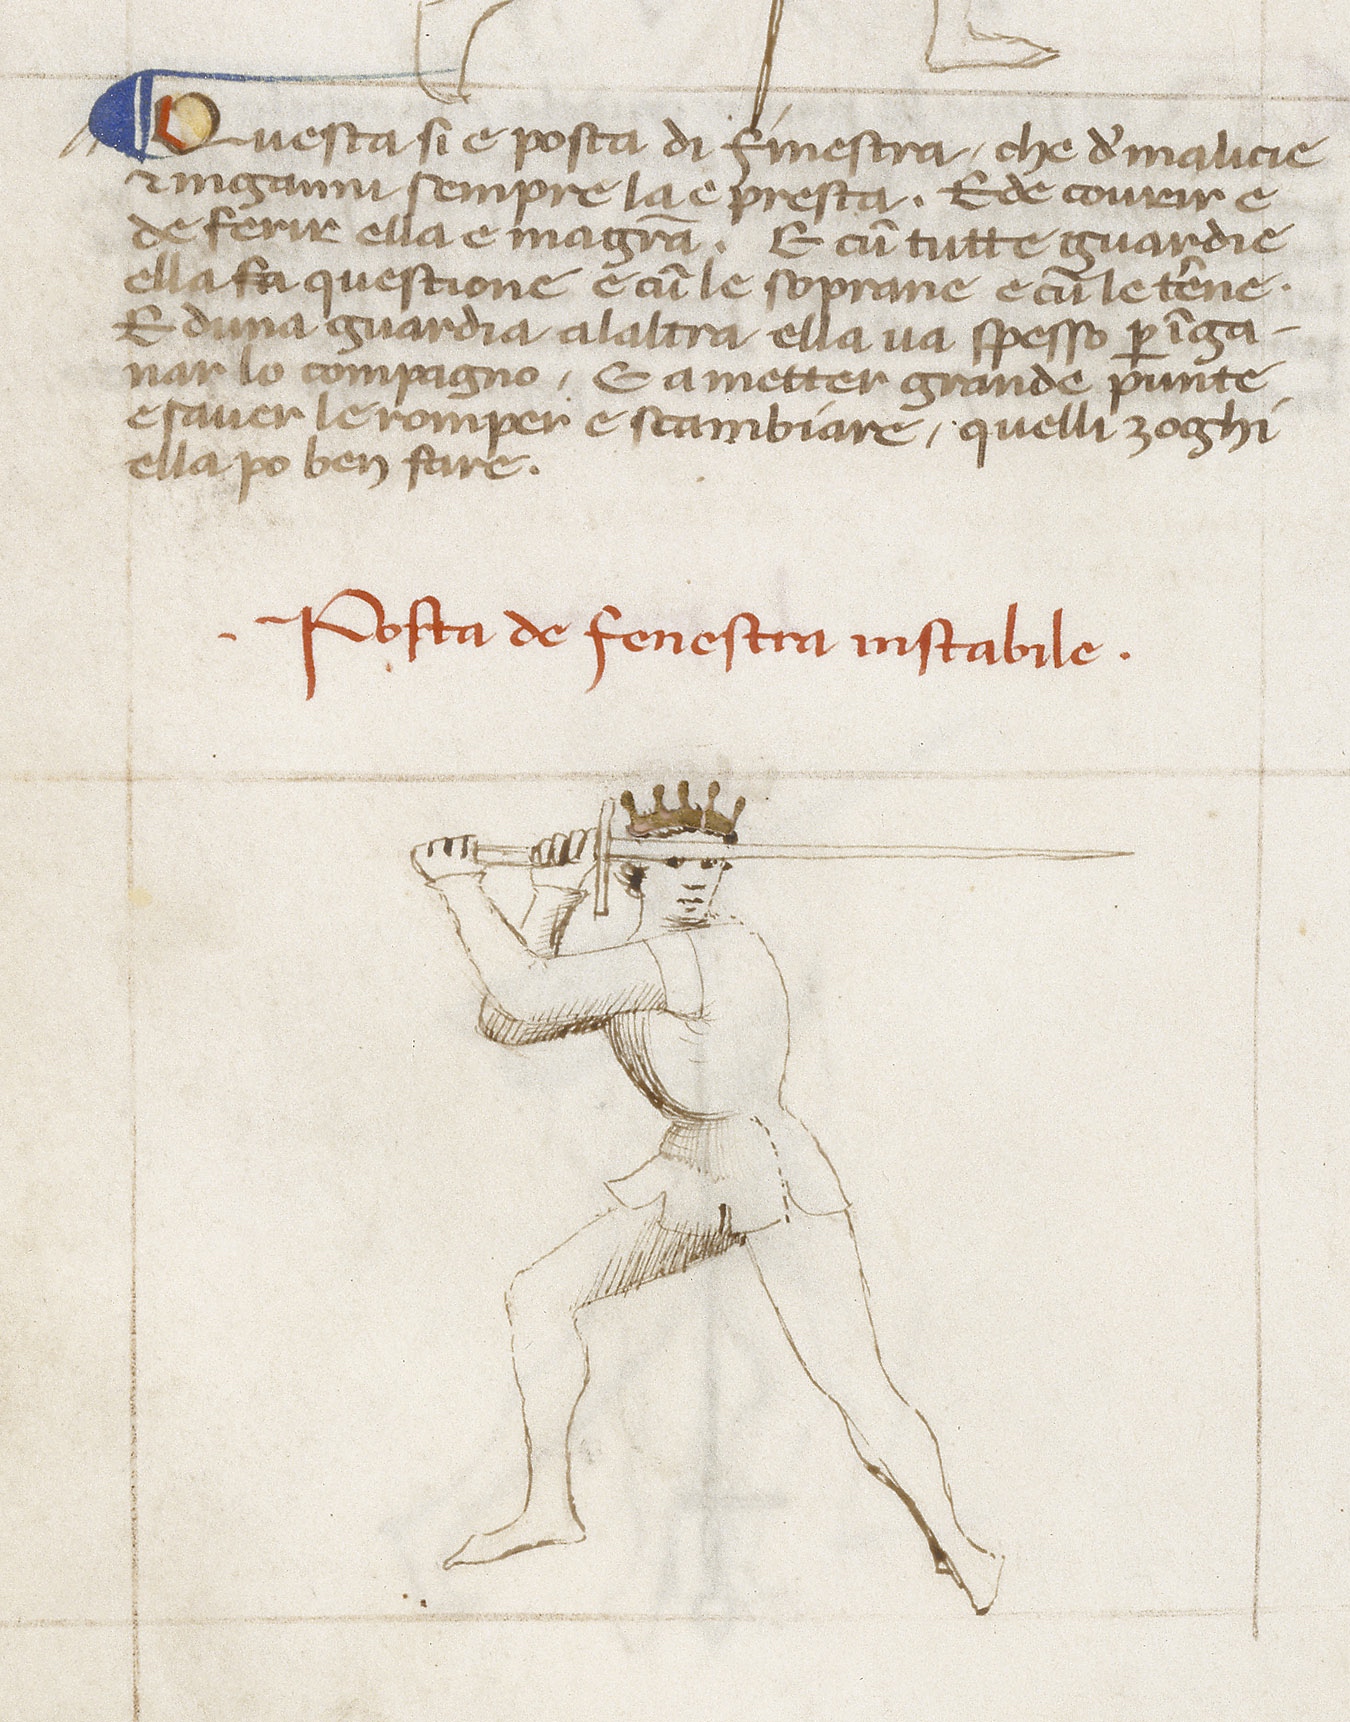 Questa si e posta di finestra, che d'malicie
⁊ inganni sempre la e presta. E de covrir e
de ferir ella e magrā. E cū tutte guardie
ella fa questione e cū le soprane e cū le t'ēne.
E d una guardia a laltra ella va spesso ꝑ īga-
nar lo compagno, E a metter grande punte
e saver le romper e scambiare, quelli zoghi
ella po ben fare.
. Posta de fenestra instabile .